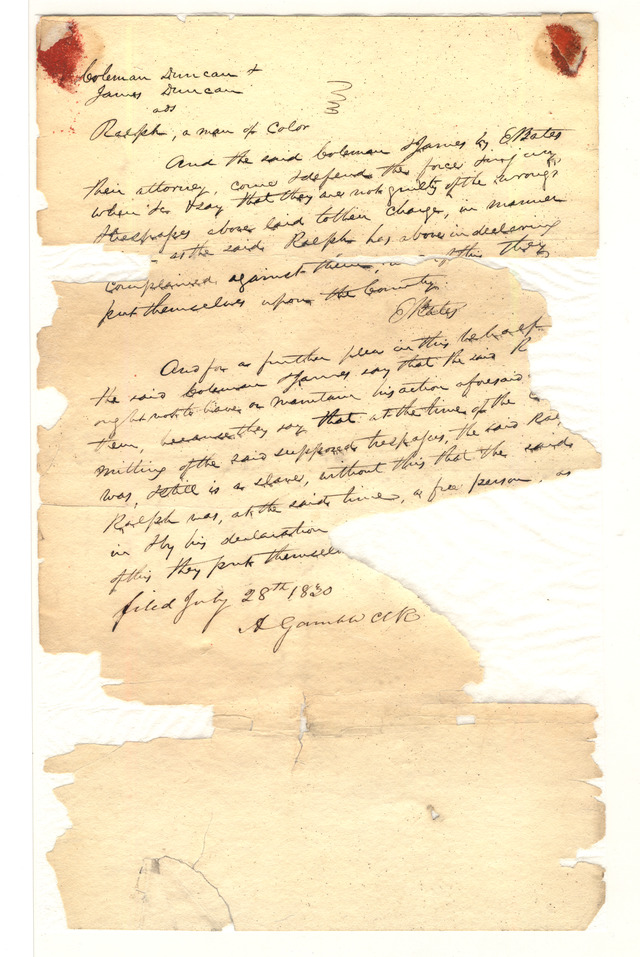 Coleman Duncan &
James Duncan
ads
Ralph, a man of Color
And the said Coleman & James by E Bates
their attorney, come & defend the force & injury
when &c & say that they are not guilty of the wrongs
& trespasses above laid to their charge, in manner
as the said Ralph has above in declaring
complained against them, of this they
put themselves upon the Country.
E Bates
And for a further plea in this behalf
the said Coleman & James say that the said R
ought not to have or maintain his action aforesaid
them, because they say that at the time of the c
mitting of the said supposed trespasses, the said Ral
was, & still is a slave, without this that the said
Ralph was, at the said time, a free person, as
in & by his declaration
of this they put themsel
filed July 28th 1830
A Gamble Clk